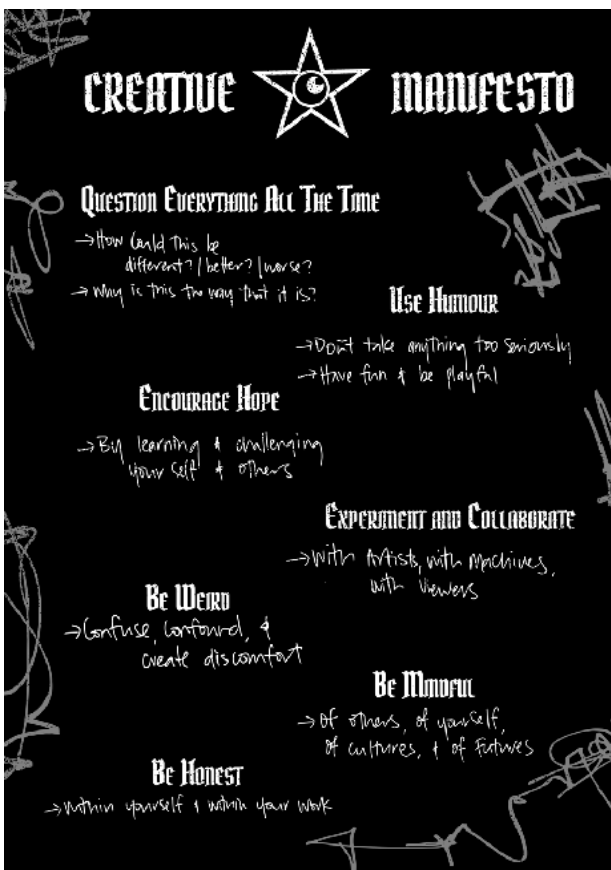 CREATIVE MANIFESTO
QUESTION EVERYTHING ALL THE TIME
→How could this be
different?/better?/worse?
→Why is this the way that it is?
USE HUMOUR
→Don't take anything too seriously
→Have fun & be playful
ENCOURAGE HOPE
→By learning & challenging
yourself & others
EXPERIMENT AND COLLABORATE
→With Artists, with Machines,
with Viewers
BE WEIRD
→Confuse, confound, &
create discomfort
BE MINDFUL
→Of others, of yourself,
of cultures, & of Futures
BE HONEST
→Within yourself & within your work